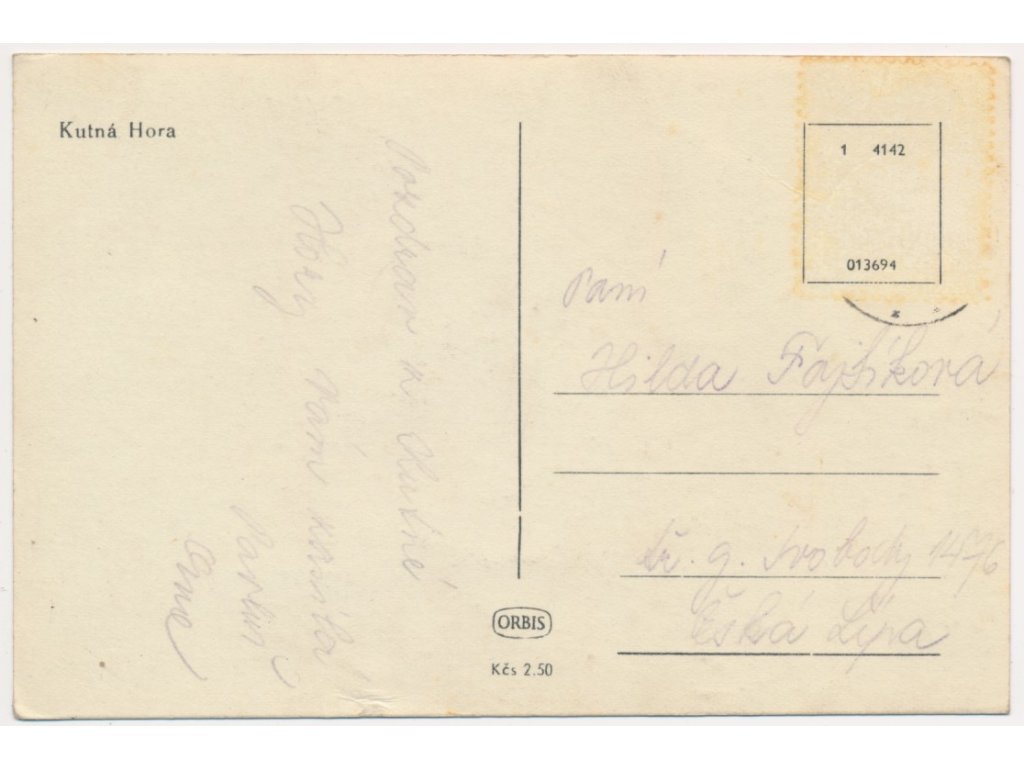 Kutná Hora
Pozdrav z Kutné
Hory Vám
1 4142
013694
Paní
Hilda Fajtíková
tř. g. Svobody 1476
Česká Lípa
ORBIS
Kčs 2.50